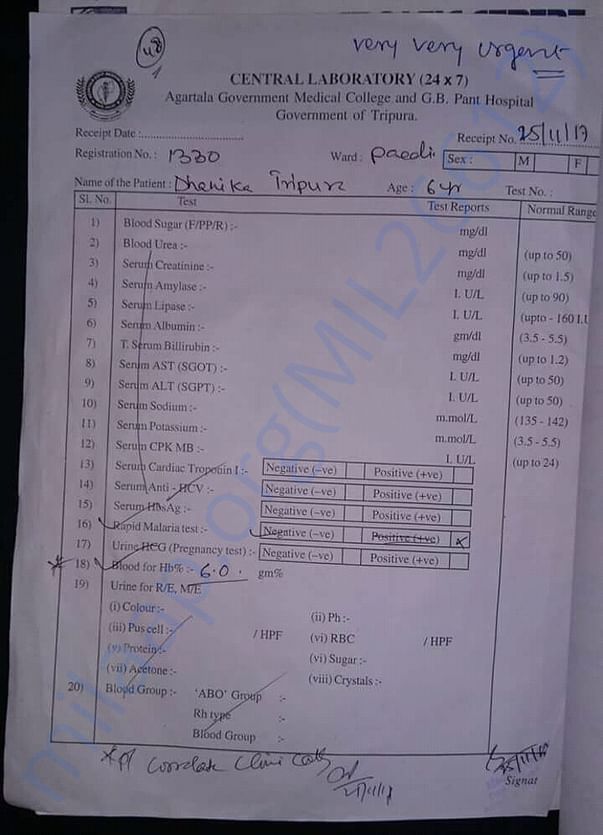 48
very very urgent
CENTRAL LABORATORY (24 x 7)
Agartala Government Medical College and G.B. Pant Hospital
Government of Tripura.
Receipt Date :..............................
Receipt No. 25/11/17
Registration No. : 1330 Ward : Paedi. Sex : M F
Name of the Patient : Dhanika Tripura Age : 6 yr Test No. :
Sl. No. Test Test Reports Normal Range
1) Blood Sugar (F/PP/R) :- mg/dl
2) Blood Urea :- mg/dl (up to 50)
3) Serum Creatinine :- mg/dl (up to 1.5)
4) Serum Amylase :- I. U/L (up to 90)
5) Serum Lipase :- I. U/L (upto - 160 I.U
6) Serum Albumin :- gm/dl (3.5 - 5.5)
7) T. Serum Billirubin :- mg/dl (up to 1.2)
8) Serum AST (SGOT) :- I. U/L (up to 50)
9) Serum ALT (SGPT) :- I. U/L (up to 50)
10) Serum Sodium :- m.mol/L (135 - 142)
11) Serum Potassium :- m.mol/L (3.5 - 5.5)
12) Serum CPK MB :- I. U/L (up to 24)
13) Serum Cardiac Troponin I :- Negative (–ve) Positive (+ve)
14) Serum Anti - HCV :- Negative (–ve) Positive (+ve)
15) Serum HbsAg :- Negative (–ve) Positive (+ve)
16) Rapid Malaria test :- Negative (–ve) Positive (+ve) x
17) Urine HCG (Pregnancy test) :- Negative (–ve) Positive (+ve)
* 18) Blood for Hb% :- 6.0. gm%
19) Urine for R/E, M/E
(i) Colour :- (ii) Ph :-
(iii) Pus cell :- / HPF (vi) RBC / HPF
(v) Protein :- (vi) Sugar :-
(vii) Acetone :- (viii) Crystals :-
20) Blood Group :- 'ABO' Group :-
Rh type :-
Blood Group :-
* pl Correlate Clinically
25/11/17
25/11/17
Signat